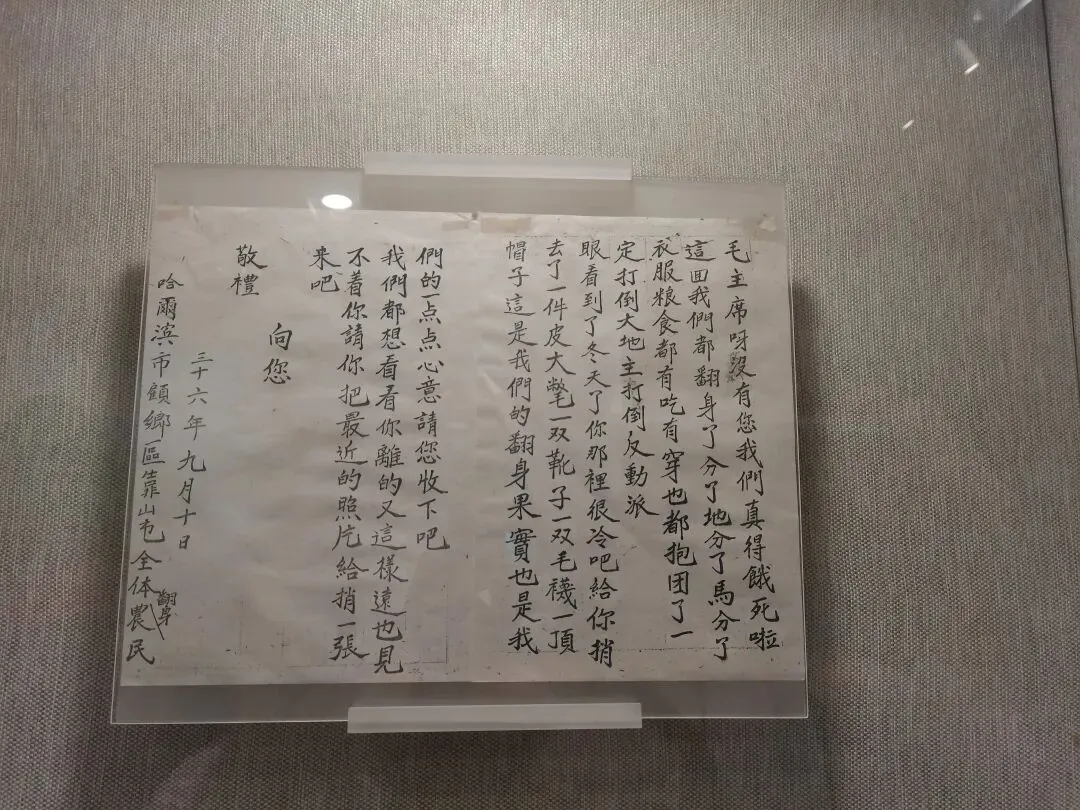 毛主席呀沒有您我們真得餓死啦
這回我們都翻身了分了地分了馬分了
衣服粮食都有吃有穿也都抱团了一
定打倒大地主打倒反動派
眼看到了冬天了你那裡很冷吧給你捎
去了一件皮大氅一双靴子一双毛襪一頂
帽子這是我們的翻身果實也是我
們的一点点心意請您收下吧
我們都想看看你離的又這樣遠也見
不着你請你把最近的照片給捎一張
来吧
向您
敬禮
三十六年九月十日
哈爾滨市顧鄉區靠山屯全体翻身農民